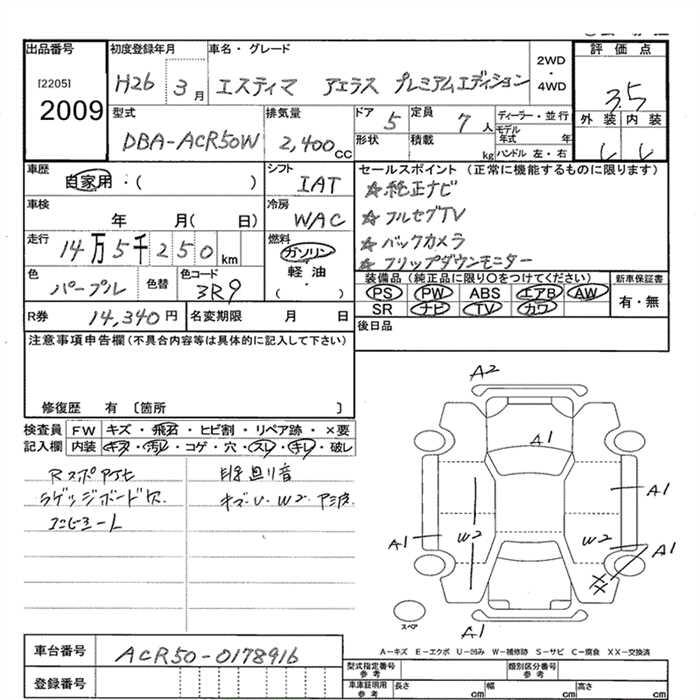 出品番号
[2205]
2009
初度登録年月
H26 3月
車名・グレード
エスティマ アエラス プレミアムエディション
2WD
・
4WD
評価点
3.5
型式
DBA-ACR50W
排気量
2,400cc
ドア 5
定員 7人
形状
積載 kg
ディーラー・並行
モデル年式 年
ハンドル 左・右
外装 内装
車歴
自家用・( )
シフト
IAT
セールスポイント (正常に機能するものに限ります)
☆純正ナビ
☆フルセグTV
☆バックカメラ
☆フリップダウンモニター
車検
年 月( 日)
冷房
WAC
走行
14万5千250km
燃料
ガソリン
軽油
( )
色
パープル
色替
色コード
3R9
装備品 (純正品に限り〇をつけてください)
PS PW ABS エアB AW
SR ナビ TV カワ
新車保証書
有・無
R券 14,340円
名変期限 月 日
後日品
注意事項申告欄(不具合内容等は具体的に記入して下さい)
修復歴 有 〔箇所 〕
検査員記入欄
FW キズ・飛石・ヒビ割・リペア跡・×要
内装 キズ・汚レ・コゲ・穴・スレ・キレ・破レ
ラゲッジボード欠
キズ・U・W2
A2
A1
A1
W2
A1
W2
A1
XX
A1
スペア
A-キズ E-エクボ U-凹み W-補修跡 S-サビ C-腐食 XX-交換済
車台番号
ACR50-0178916
登録番号
型式指定番号
参考
類別区分番号
参考
車庫証明用
参考
長さ cm
幅 cm
高さ cm